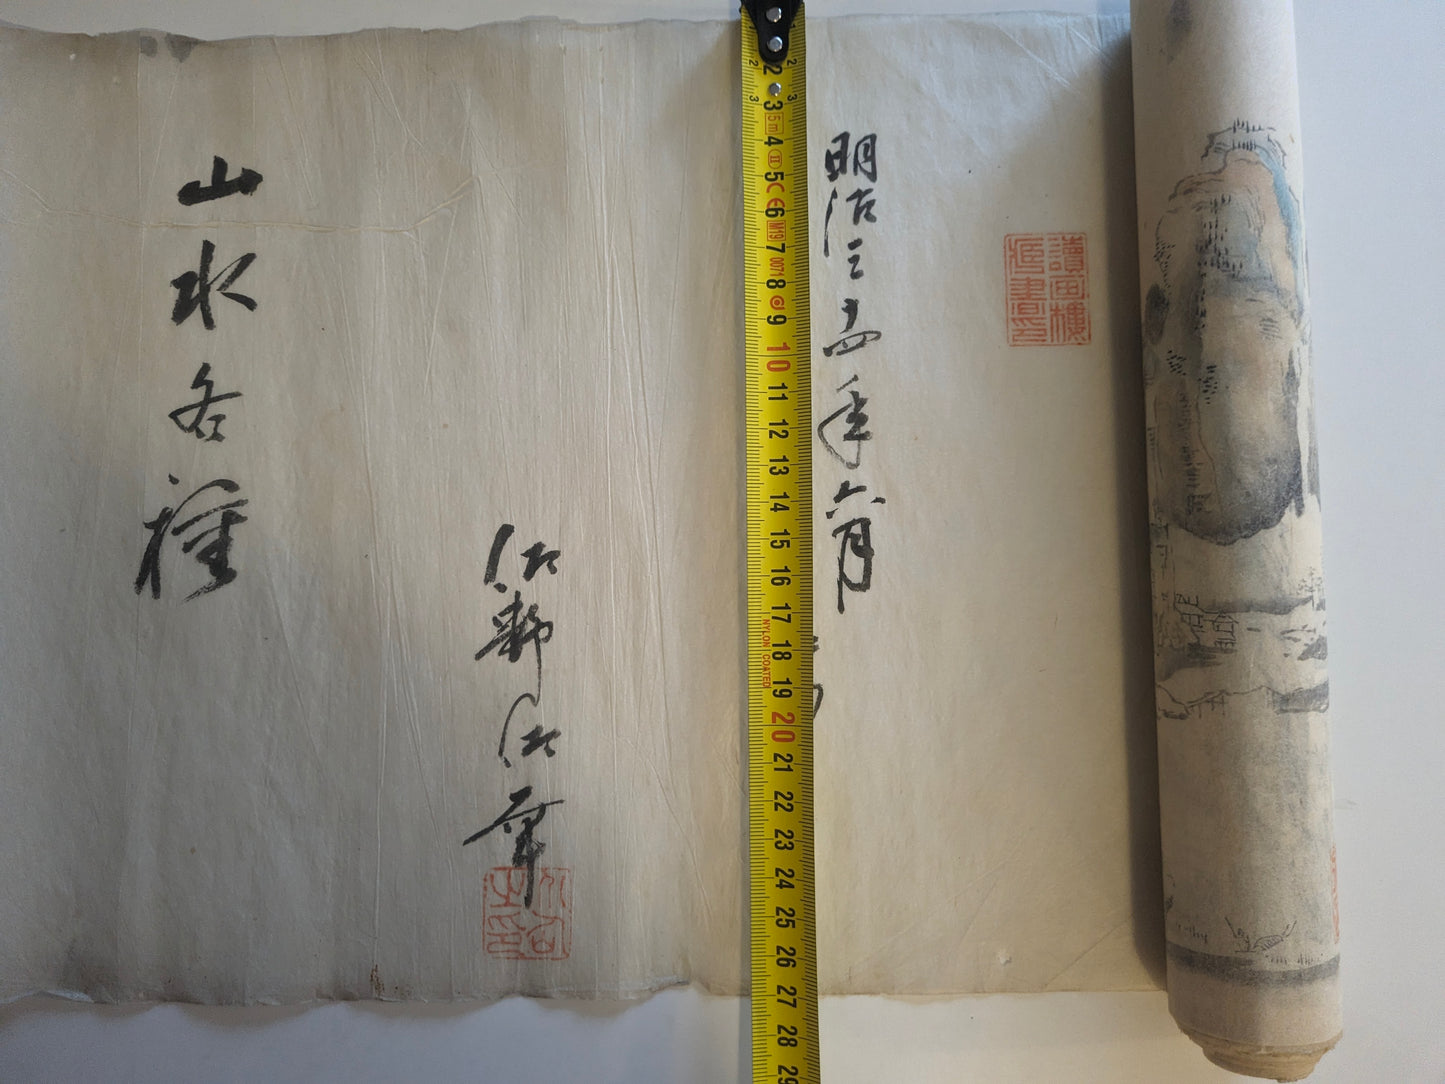 讀画樓
明治三十四年六月
2
3
5m
4
II
5
CE
6
M19
7
0071
8
9
10
11
12
13
14
15
16
17
NYLON COATED
18
19
20
21
22
23
24
25
26
27
28
29
山水各種